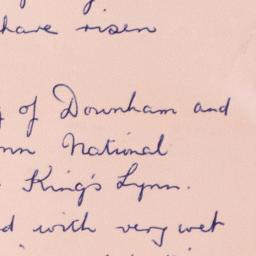 have risen
of Downham and
National
King's Lynn.
with very wet